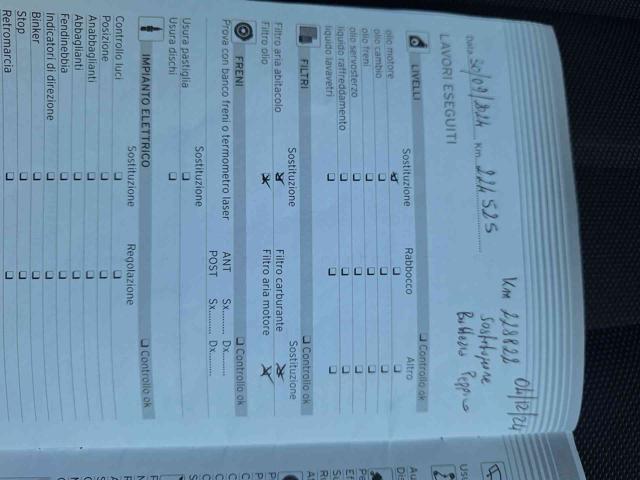 Km 228828 04/12/24
Sostituzione
Batteria Peppino
Data 30/09/2024 Km 224525
LAVORI ESEGUITI
LIVELLI ❑ Controllo ok
Sostituzione Rabbocco Altro
olio motore
olio cambio
olio freni
olio servosterzo
liquido raffreddamento
liquido lavavetri
FILTRI ❑ Controllo ok
Sostituzione Sostituzione
Filtro aria abitacolo Filtro carburante
Filtro olio Filtro aria motore
FRENI ❑ Controllo ok
Prova con banco freni o termometro laser ANT Sx......... Dx.........
POST Sx......... Dx.........
Sostituzione
Usura pastiglia
Usura dischi
IMPIANTO ELETTRICO ❑ Controllo ok
Sostituzione Regolazione
Controllo luci
Posizione
Anabbaglianti
Abbaglianti
Fendinebbia
Indicatori di direzione
Binker
Stop
Retromarcia